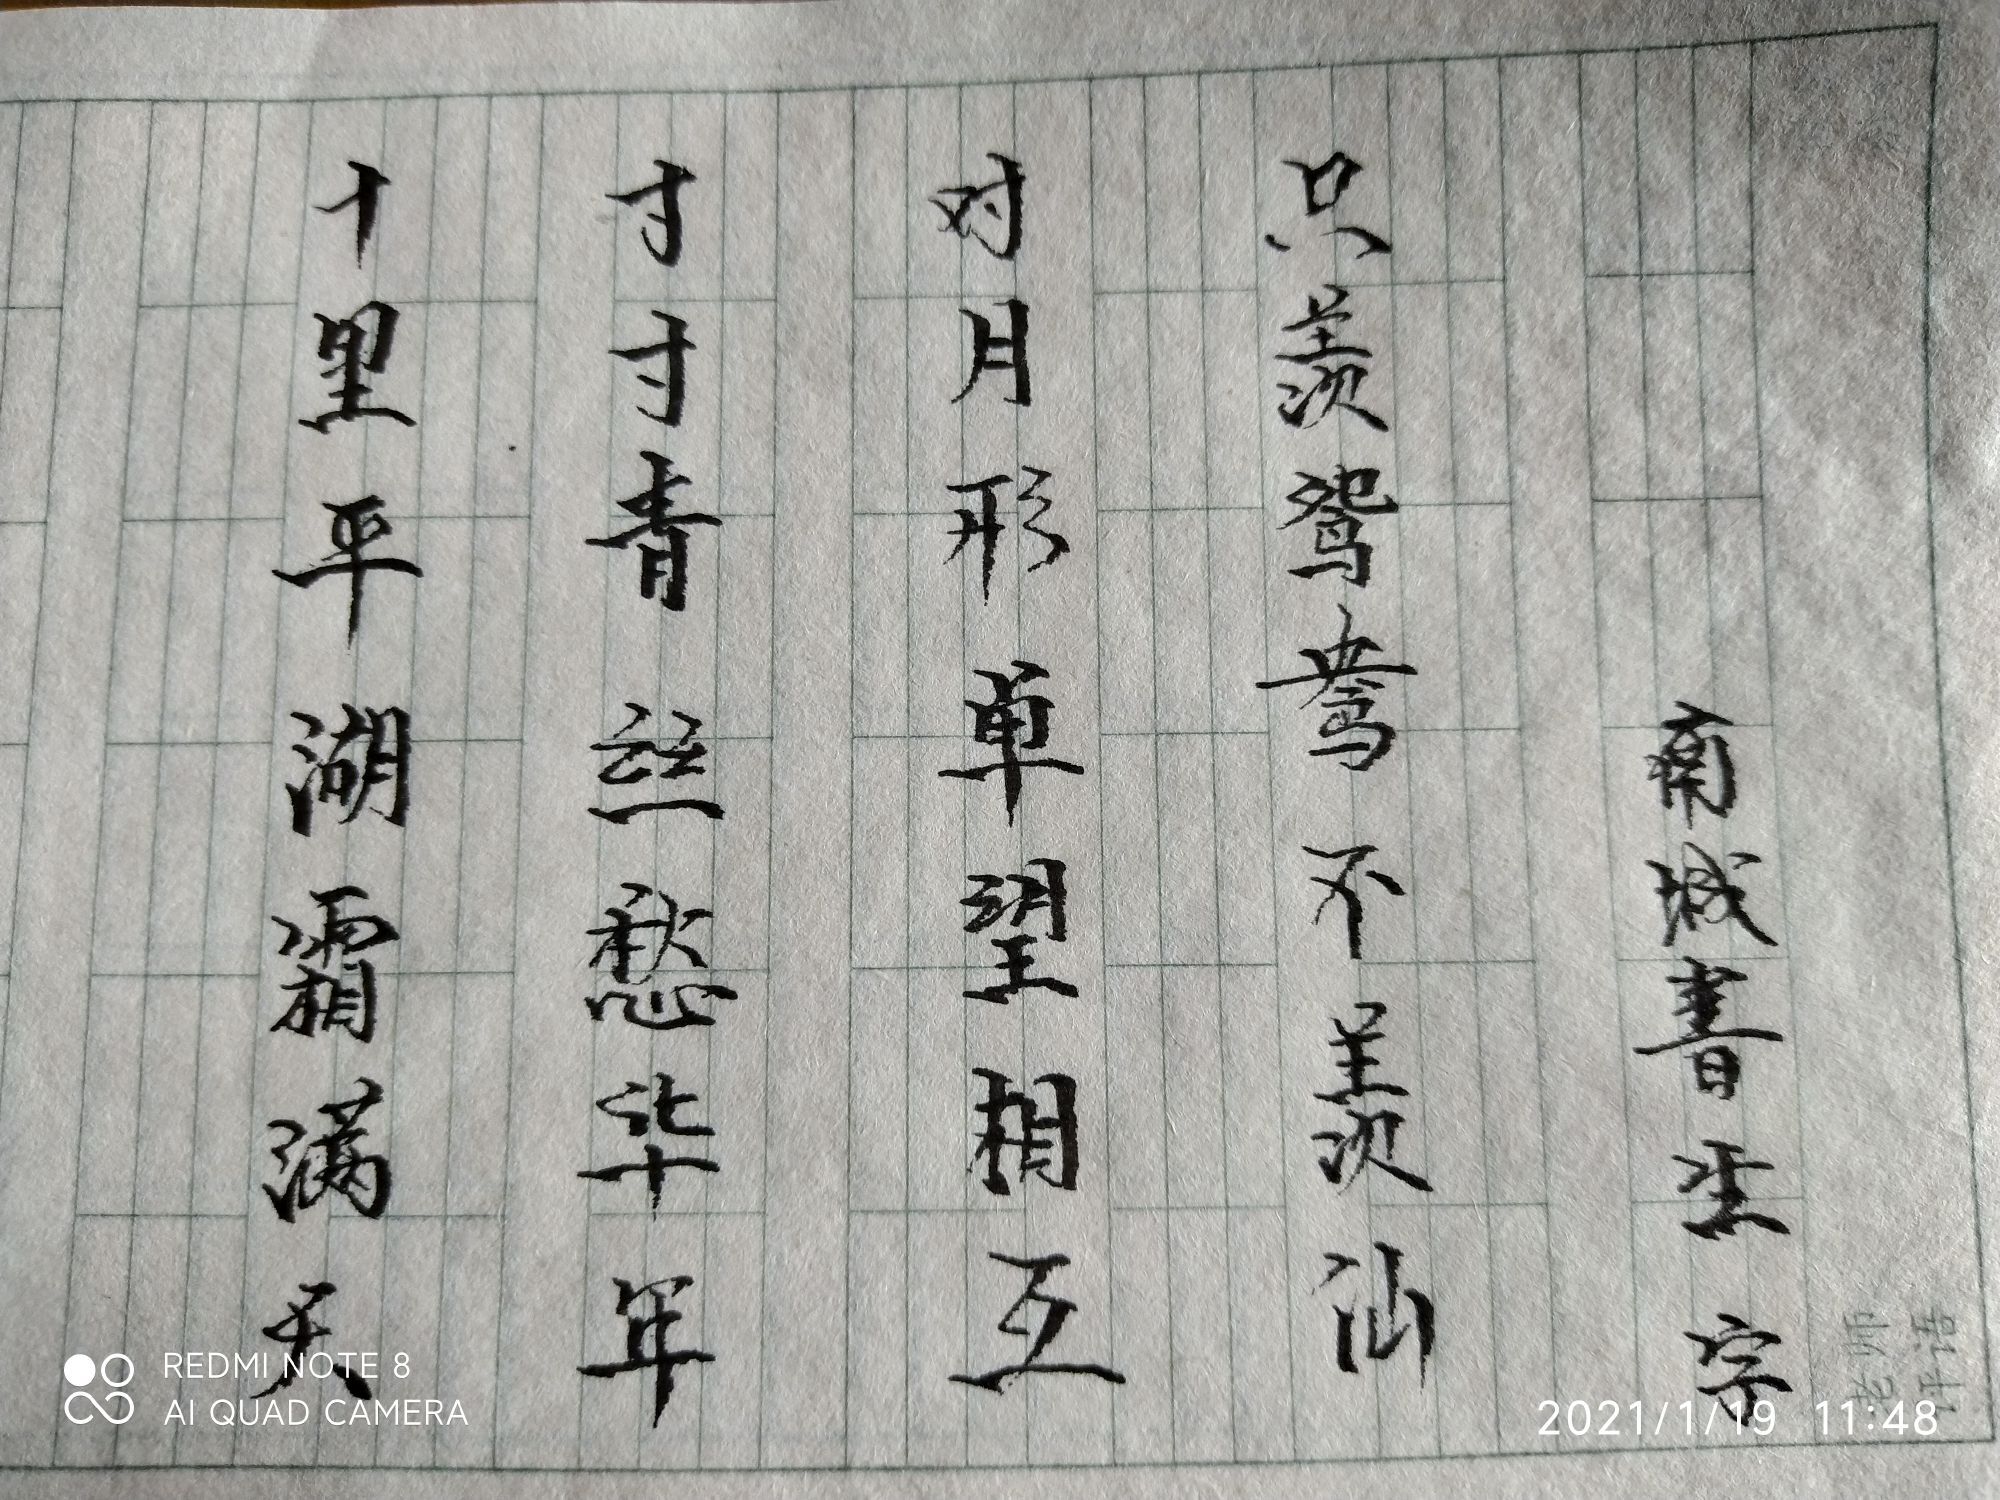 十里平湖霜满天
寸寸青丝愁华年
对月形单望相互
只羡鸳鸯不羡仙
南城書生 宗
REDMI NOTE 8
AI QUAD CAMERA
2021/1/19 11:48